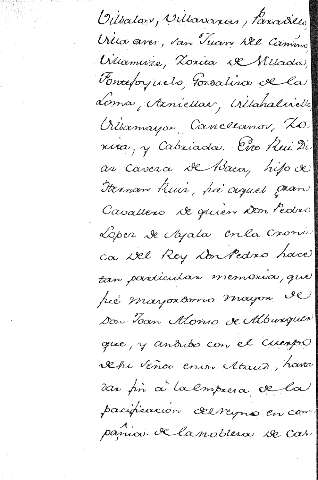 Villalon, Villavaruz, Paradilla
Villa aver, San Juan del Camino
Villamuza, Zorita de
Fontefoyuelo, Gordaliza de la
Loma, Arniellas,
Villamayor, Castellanos, Zo-
rita, y Cabriada. Este Rui Di-
az Cavesa de Vaca, hijo de
Hernan Ruiz, fue aquel gran
Cavallero de quien Don Pedro
Lopez de Ayala en la Croni-
ca del Rey Don Pedro hace
tan particular memoria, que
fue Mayordomo mayor de
Don Joan Alonso de Alburquer
que, y andubo con el cuerpo
de su Señor en un Ataud, hasta
dar fin â la empresa de la
pacificacion del reyno en com-
pañia de la noblesa de Cas